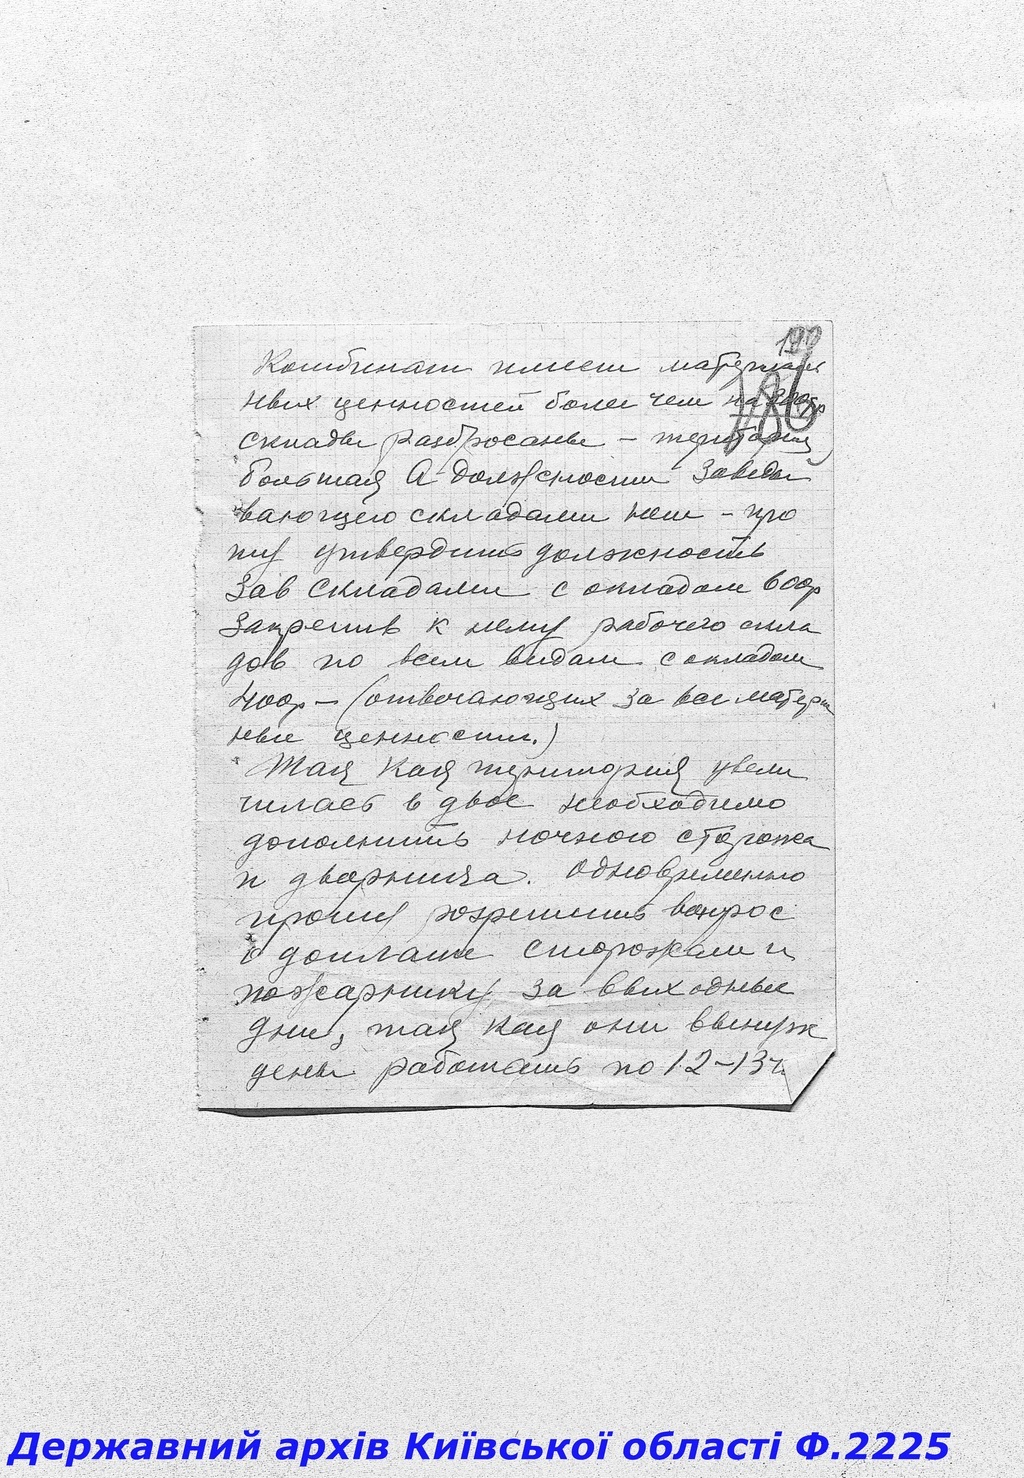 190
186
Комбинат имеет материаль
ных ценностей более чем на
склады разбросаны – територия
большая А должности Заведы
вающего складами нет – про
шу утвердить должность
Зав Складами с окладом 600р
Закрепив к нему рабочего скла
дов по всем видам с окладом
400р – (отвечающих за все матери
ные ценности.)
Так как територия увели
чилась в двое необходимо
дополнить ночного сторожа
и дворника. Одновременно
прошу розрешить вопрос
о доплате сторожам и
пожарнику за выходные
дни, так как они вынуж
дены работать по 12–13ч.
Державний архів Київської області Ф.2225